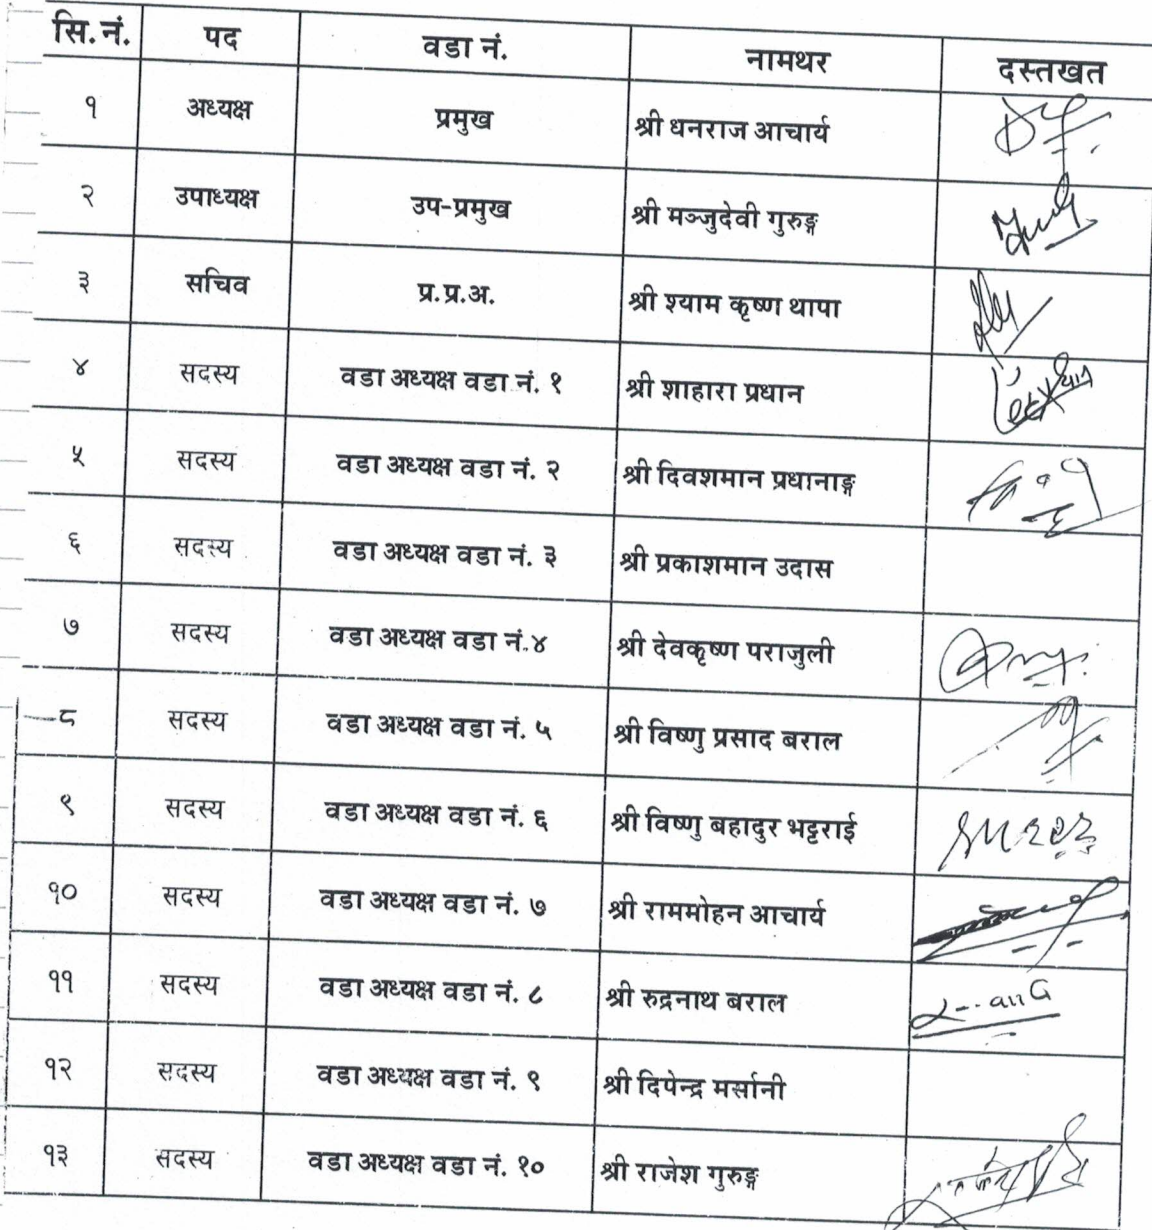 सि.नं. पद वडा नं. नामथर दस्तखत
१ अध्यक्ष प्रमुख श्री धनराज आचार्य
२ उपाध्यक्ष उप-प्रमुख श्री मञ्जुदेवी गुरुङ्ग
३ सचिव प्र.प्र.अ. श्री श्याम कृष्ण थापा
४ सदस्य वडा अध्यक्ष वडा नं. १ श्री शाहारा प्रधान
५ सदस्य वडा अध्यक्ष वडा नं. २ श्री दिवशमान प्रधानाङ्ग
६ सदस्य वडा अध्यक्ष वडा नं. ३ श्री प्रकाशमान उदास
७ सदस्य वडा अध्यक्ष वडा नं.४ श्री देवकृष्ण पराजुली
८ सदस्य वडा अध्यक्ष वडा नं. ५ श्री विष्णु प्रसाद बराल
९ सदस्य वडा अध्यक्ष वडा नं. ६ श्री विष्णु बहादुर भट्टराई
१० सदस्य वडा अध्यक्ष वडा नं. ७ श्री राममोहन आचार्य
११ सदस्य वडा अध्यक्ष वडा नं. ८ श्री रुद्रनाथ बराल
१२ सदस्य वडा अध्यक्ष वडा नं. ९ श्री दिपेन्द्र मर्सानी
१३ सदस्य वडा अध्यक्ष वडा नं. १० श्री राजेश गुरुङ्ग